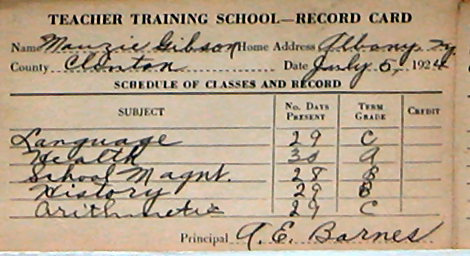 TEACHER TRAINING SCHOOL—RECORD CARD
Name Mauzie Gibson Home Address Albany, Ky.
County Clinton Date July 5, 1924
SCHEDULE OF CLASSES AND RECORD
SUBJECT No. DAYS PRESENT TERM GRADE CREDIT
Language 29 C
Health 30 A
School Magnt. 28 B
History 29 B
Arithmetic 29 C
Principal A. E. Barnes